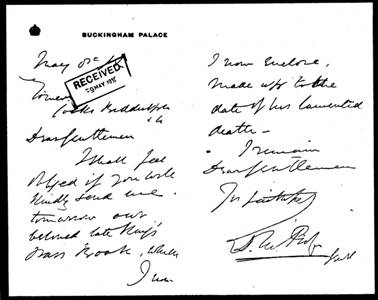 BUCKINGHAM PALACE
May
RECEIVED
9 MAY 1910
Messrs
Cocks Biddulph
Dear Gentlemen
I shall feel
obliged if you will
kindly send me
tomorrow our
beloved late King's
Pass Book, which
I now
I now enclose,
made up to the
date of his lamented
death –
I remain
Dear Gentlemen
Yrs faithfully